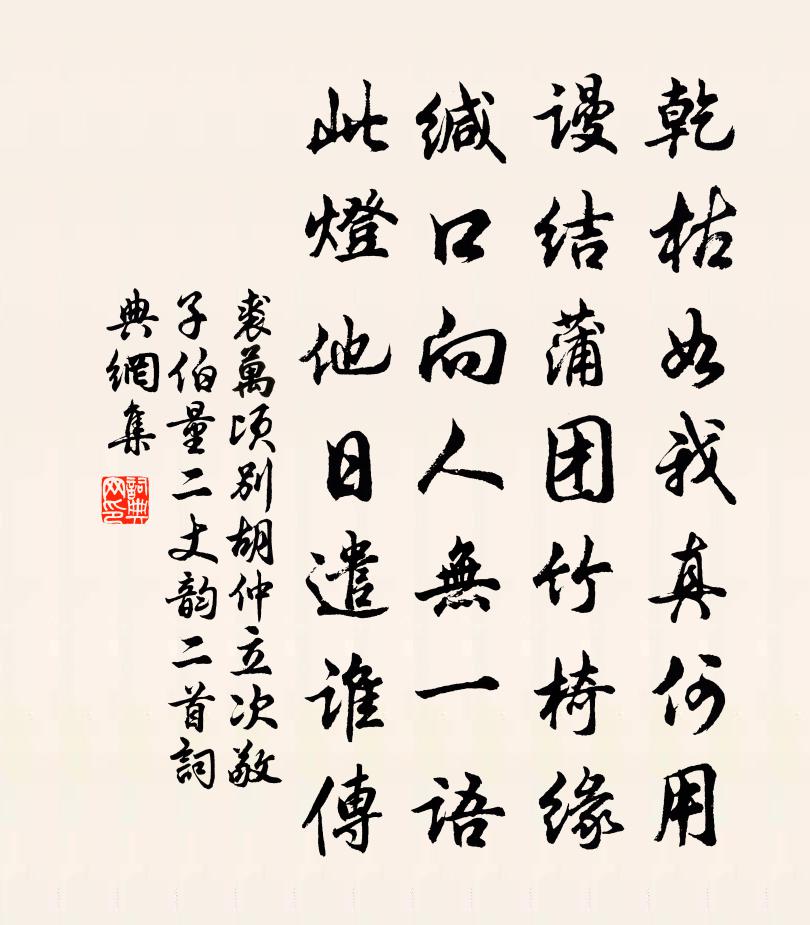 乾枯如我真何用
谩结蒲团竹椅缘
缄口向人無一语
此燈他日遣谁傳
裘萬顷别胡仲立次敬
子伯量二丈韵二首詞
典網集
詞典
网印